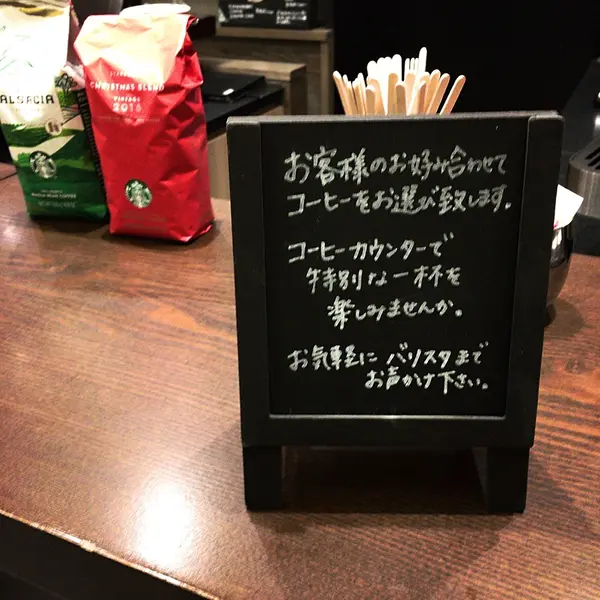 CHRISTMAS BLEND
VINTAGE
2016
お客様のお好み合わせて
コーヒーをお選び致します。
コーヒーカウンターで
特別な一杯を
楽しみませんか。
お気軽にバリスタまで
お声かけ下さい。